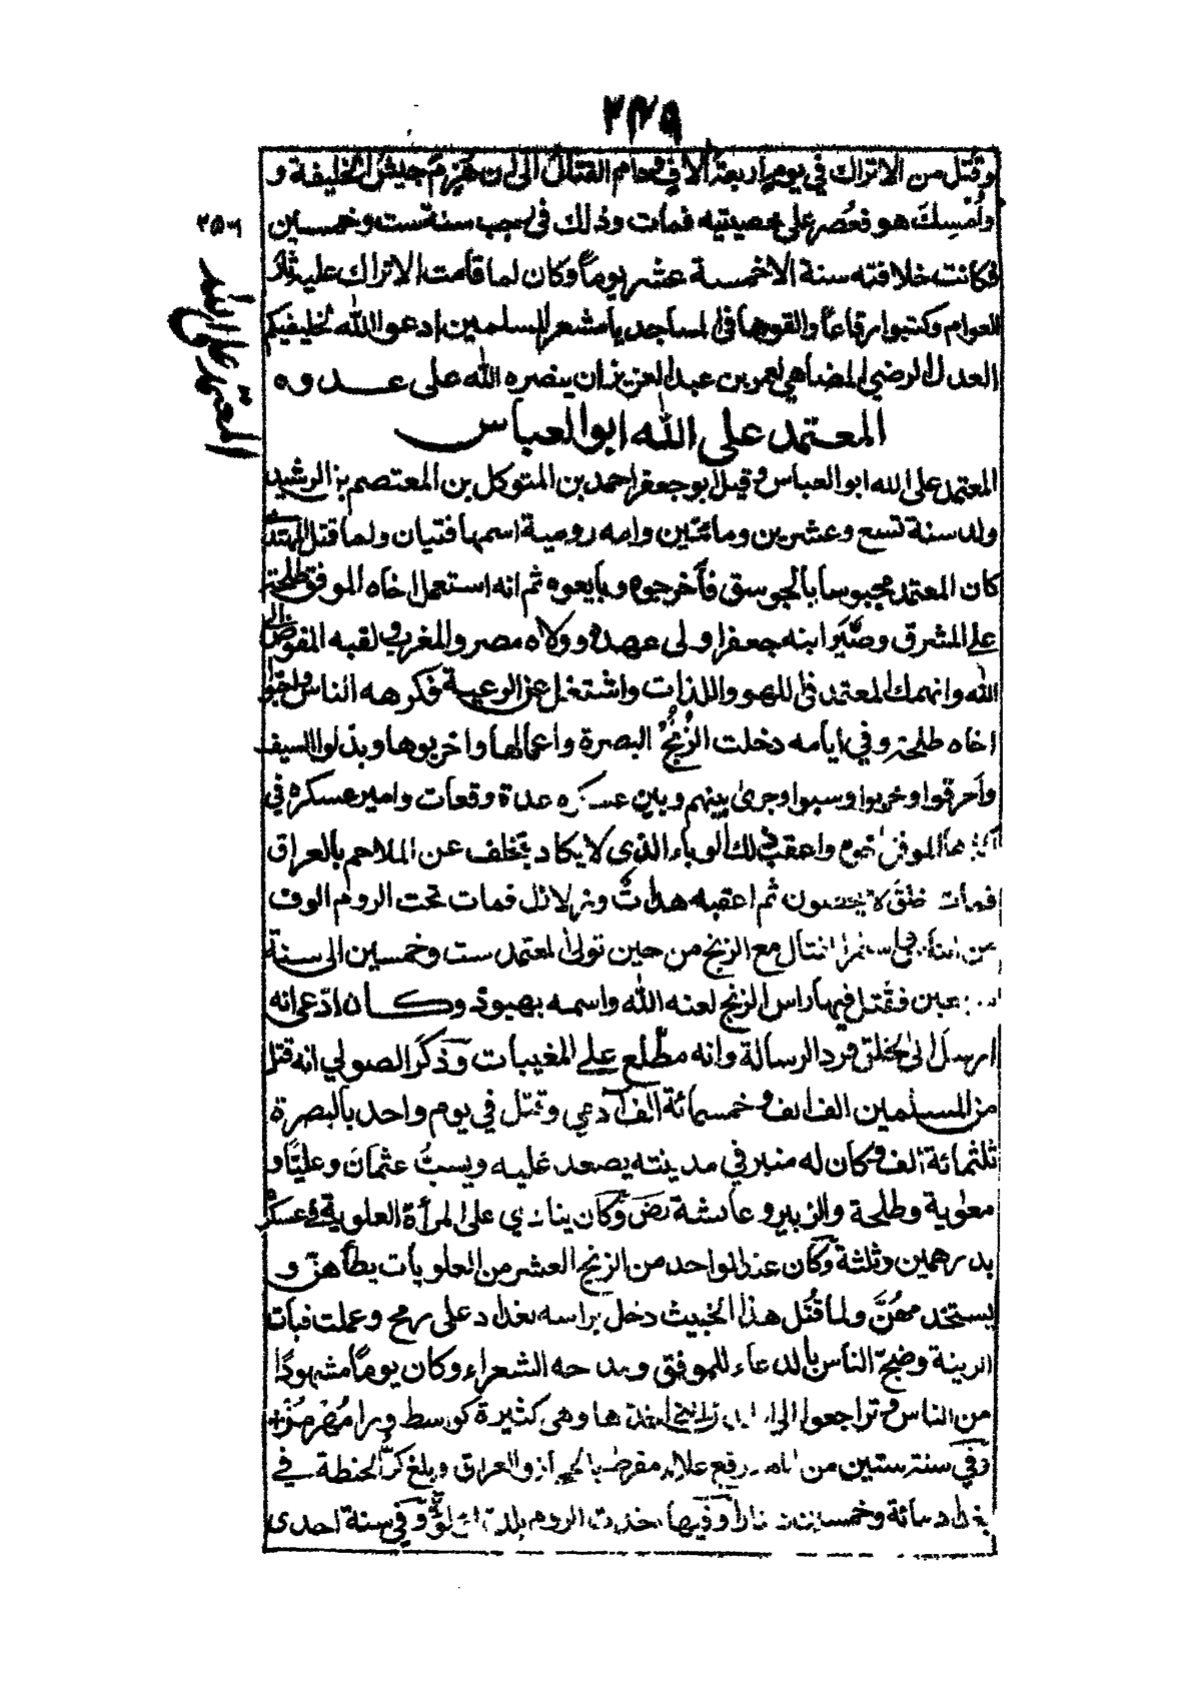 وقُتل من الاتراك في يوم اربعة آلاف ودام القتال الى ان هُزِم جيش الخليفة و
وأُمسِكَ هو فعُصر على خصيتيه فمات وذلك في رجب سنة ست وخمسين
فكانت خلافته سنة الا خمسة عشر يوماً وكان لما قامت الاتراك عليه ثار
العوام وكتبوا رقاعاً والقوها في المساجد يا معشر المسلمين ادعو الله لخليفتكم
العدل الرضي المضاهي لعمر بن عبد العزيز ان ينصره الله على عدوه
المعتمد على الله ابو العباس
المعتمد على الله ابو العباس وقيل ابو جعفر احمد بن المتوكل بن المعتصم بن الرشيد
ولد سنة تسع وعشرين ومائتين وامه رومية اسمها فتيان ولما قتل المهتدى
كان المعتمد محبوسا بالجوسق فأخرجوه وبايعوه ثم انه استعمل اخاه الموفق طلحة
على المشرق وصَيَّر ابنه جعفرا ولى عهده وولاه مصر والمغرب ولقبه المفوض الى
الله وانهمك المعتمد في اللهو واللذات واشتغل عن الرعية فكرهه الناس واحبوا
اخاه طلحة وفي ايامه دخلت الزُنج البصرة واعمالها واخربوها وبذلوا السيف
وأحرقوا وخربوا وسبوا وجرى بينهم وبين عسكره عدة وقعات وامير عسكره في
اكثرها الموفق اخوه واعقب ذلك الوباء الذى لا يكاد يتخلف عن الملاحم بالعراق
فمات خلق لا يحصون ثم اعقبه هدات وزلازل فمات تحت الردم الوف
من الناس واستمر القتال مع الزنج من حين تولى المعتمد ست وخمسين الى سنة
سبعين فقُتل فيها راس الزنج لعنه الله واسمه بهبوذ وكان ادّعى انه
ارسل الى الخلق فرد الرسالة وانه مطّلع على المغيبات وذكر الصولي انه قتل
من المسلمين الف الف وخمسمائة الف آدمي وقتل في يوم واحد بالبصرة
ثلثمائة الف وكان له منبر في مدينته يصعد عليه ويسبُّ عثمان وعليّا و
معوية وطلحة والزبير وعائشة رض وكان ينادي على المرأة العلوية في عسكره
بدرهمين وثلثة وكان عند الواحد من الزنج العشر من العلويات يطأهنّ و
يستخدمهُنَّ ولما قُتل هذا الخبيث دخل براسه بغداد على رمح وعملت قباب
الزينة وضجّ الناس بالدعاء للموفق ومدحه الشعراء وكان يوماً مشهودًا
من الناس وتراجعوا الى المدن التي اخذها وهى كثيرة كواسط ورامهرمز
وفي سنة ستين من ايامه وقع غلاء مفرط بالحجاز والعراق وبلغ كرُّ الحنطة في
بغداد مائة وخمسين دينارا وفيها اخذت الروم بلد لؤلؤة وفي سنة احدى
٢٥٦
المعتمد على الله